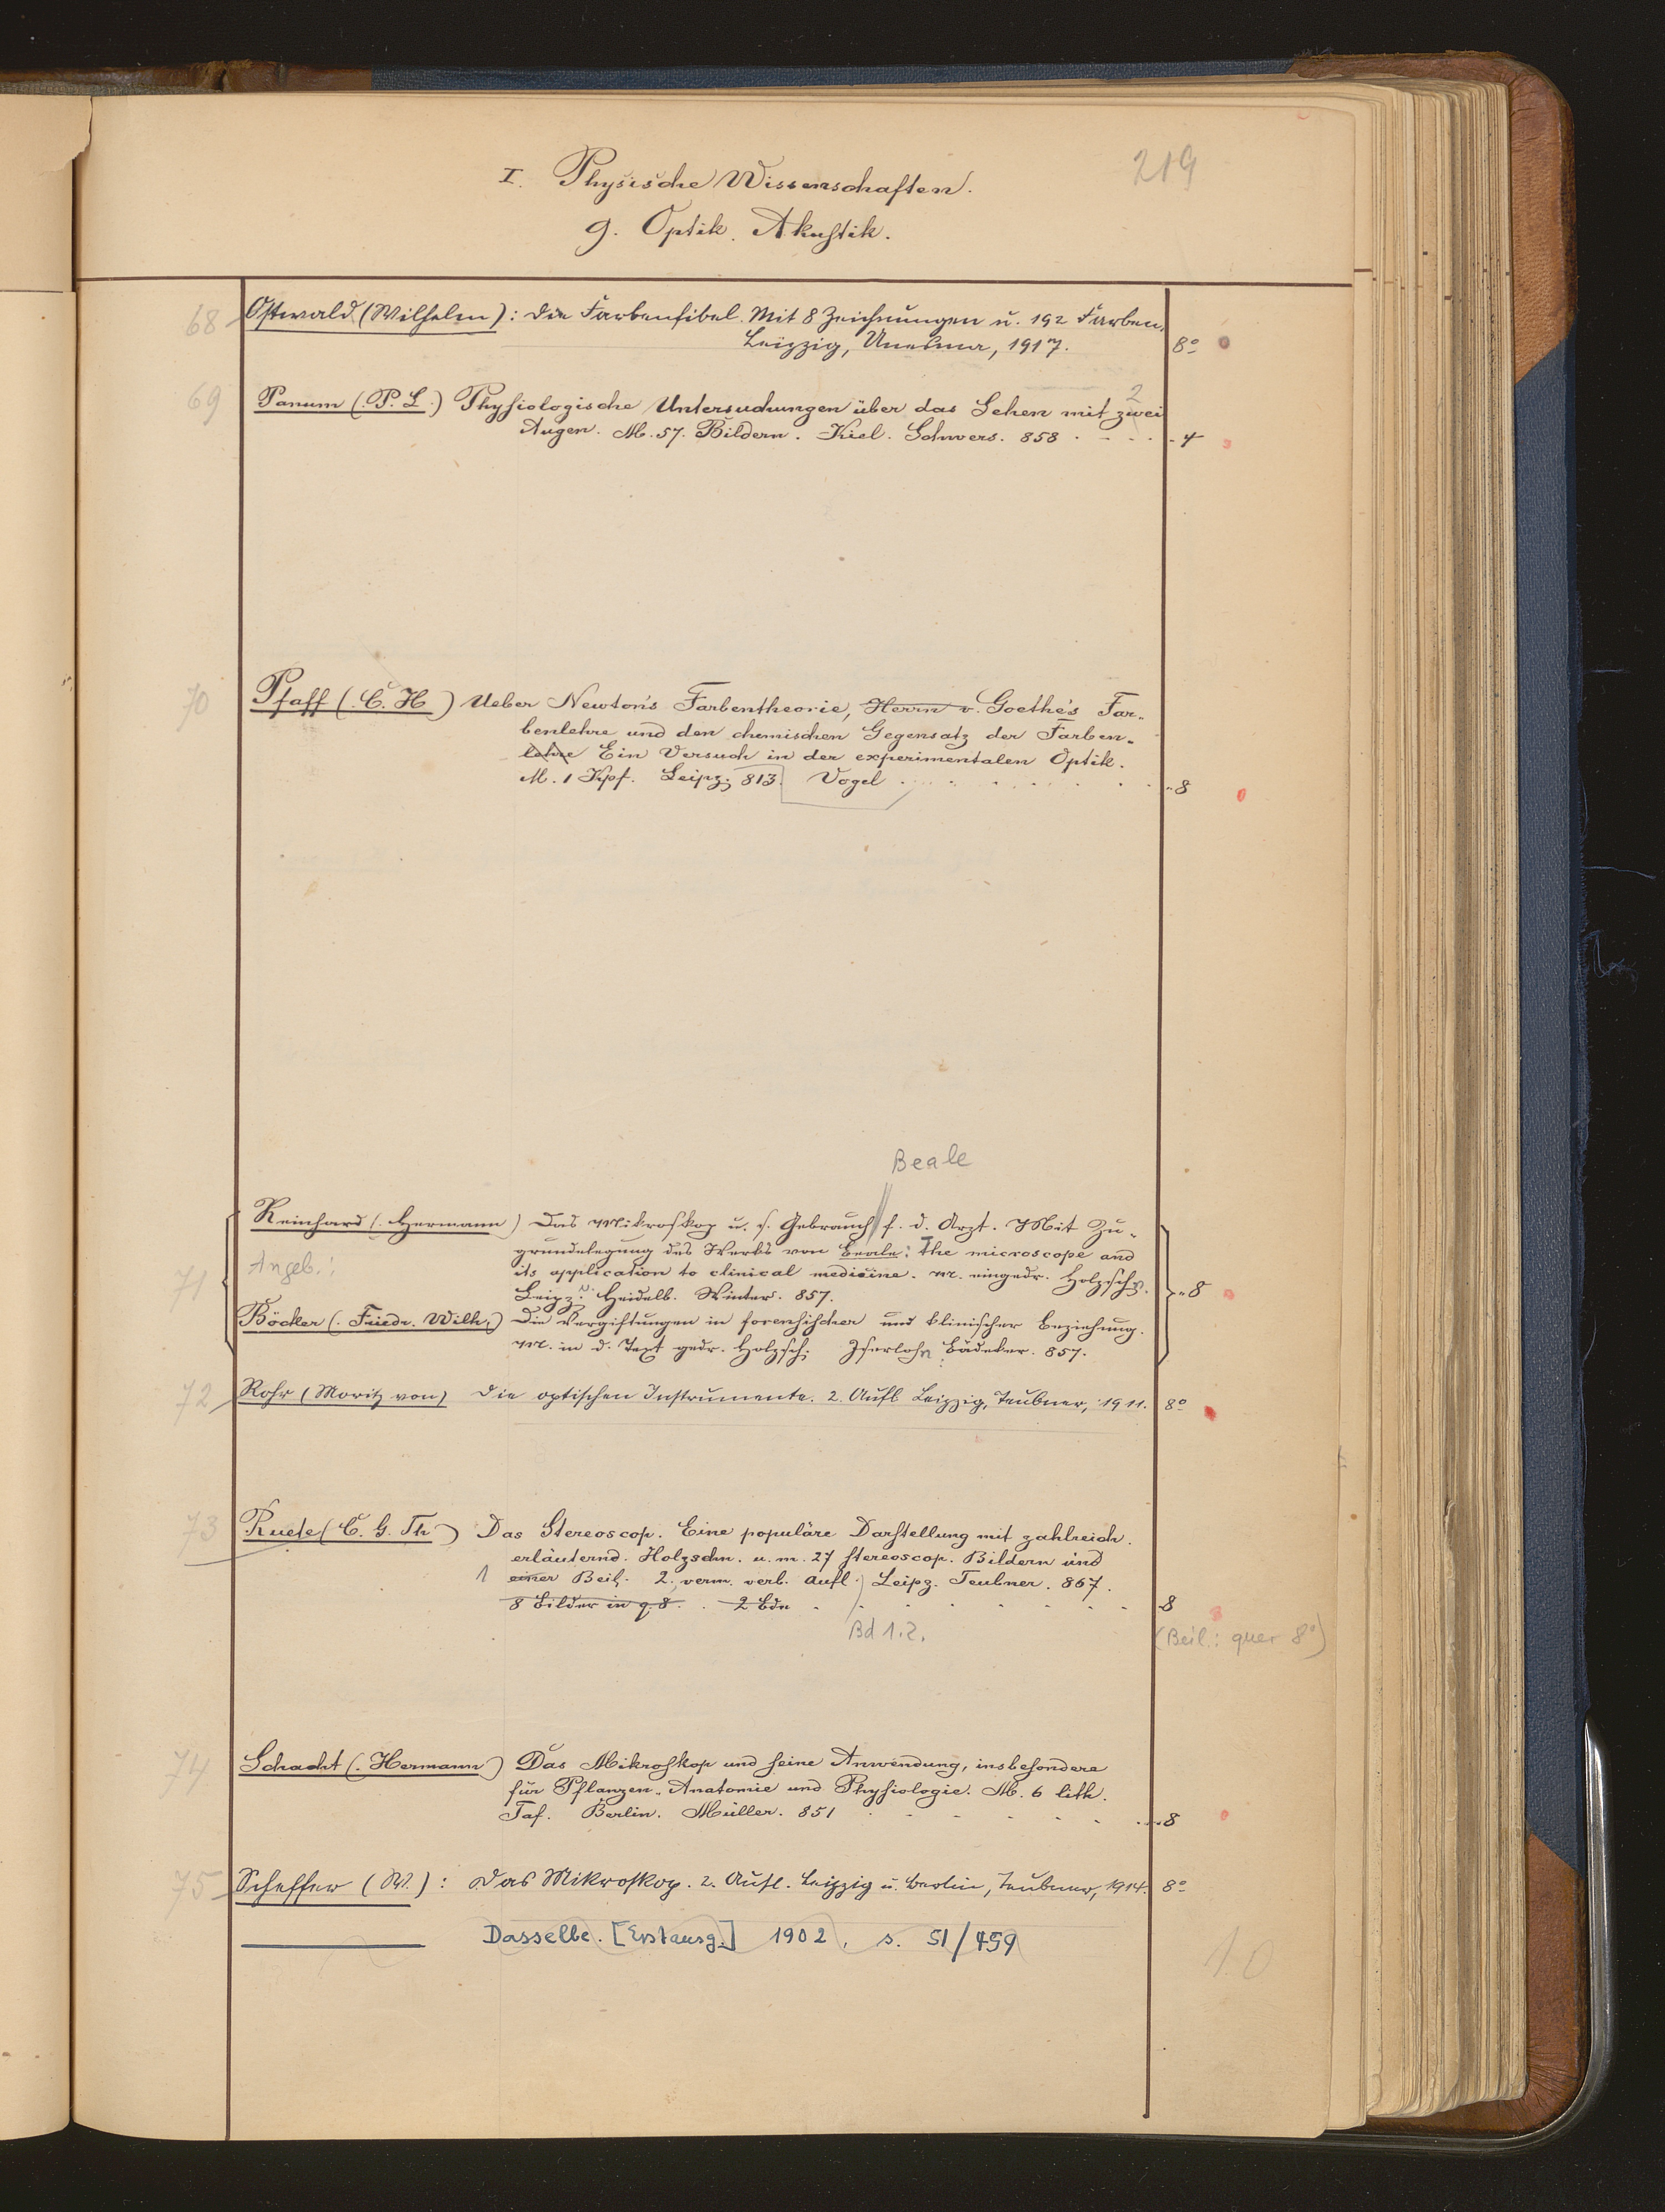 219
I. Physische Wissenschaften.
g. Optik. Akustik.
68 Ostwald (Wilhelm): Die Farbenfibel. Mit 8 Zeichnungen u. 192 Farben.
Leipzig, Unesma, 1917. 8º
2
69 Panum (P. L.) Physiologische Untersuchungen über das Sehen mit zwei
Augen. M. 57. Bildern. Kiel. Schwers. 858 . - . . . 4
70 Pfaff (C. H) Ueber Newton's Farbentheorie, Herrn v. Goethe's Far-
benlehre und den chemischen Gegensatz der Farben-
lehre Ein Versuch in der experimentalen Optik.
M. 1 Kpf. Leipz. 813. Vogel . . . . . . . 8
Beale
Reinhard (Hermann) Das Mikroskop u. s. Gebrauch f. d. Arzt. Mit Zu-
grundelegung des Werks von Beale: The microscope and
Angeb.: its application to clinical medicine. M. eingedr. Holzschn.
71 Leipz. u. Heidelb. Winter. 857. 8
Böcker (Friedr. Wilh.) Die Vergiftungen in forensischer und klinischer Beziehung.
M. in d. Text gedr. Holzsch. Iserlohn Bädeker. 857.
72 Rohr (Moritz von) Die optischen Instrumente. 2. Aufl Leipzig, Teubner, 1911. 8º
73 Ruete (C. G. Th) Das Stereoscop. Eine populäre Darstellung mit zahlreich.
erläuternd. Holzschn. u. m. 27 stereoscop. Bildern und
1 einer Beil. 2. verm. verb. Aufl. Leipz. Teubner. 867.
8 Bilder in q. 8. . 2 Bde . . . . . . . 8
Bd 1.2. (Beil.: quer 8º)
74 Schacht (Hermann) Das Mikroskop und seine Anwendung, insbesondere
für Pflanzen-Anatomie und Physiologie. M. 6 lith.
Taf. Berlin. Müller. 851 . . . . . . . 8
75 Scheffer (W.): Das Mikroskop. 2. Aufl. Leipzig u. Berlin, Teubner, 1914. 8º
Dasselbe. [Erstausg.] 1902, s. 51/459
10